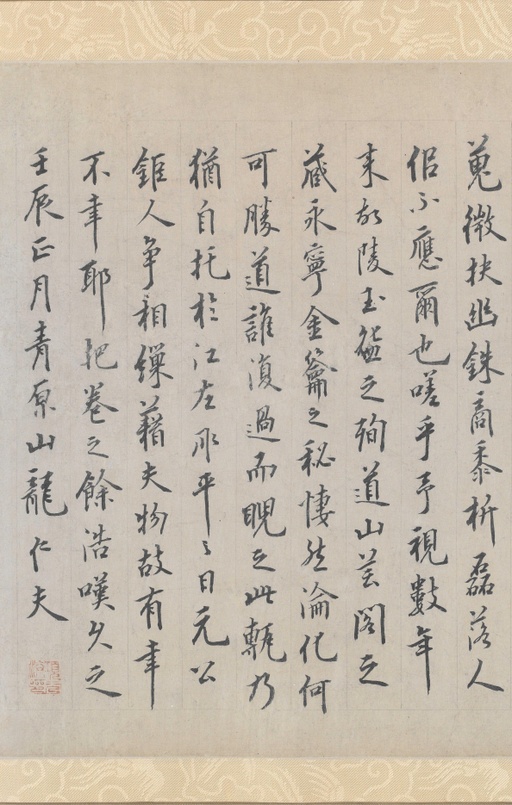 蒐微扶幽銖商黍析磊落人
侶不應爾也嗟乎予視數年
来故陵玉盌之殉道山芸閣之
藏永寧金籥之秘悽然淪化何
可勝道誰復過而睨之此軱乃
猶自托於江左承平之日元公
鉅人争相繅藉夫物故有幸
不幸耶把卷之餘浩嘆久之
壬辰正月青原山龍仁夫